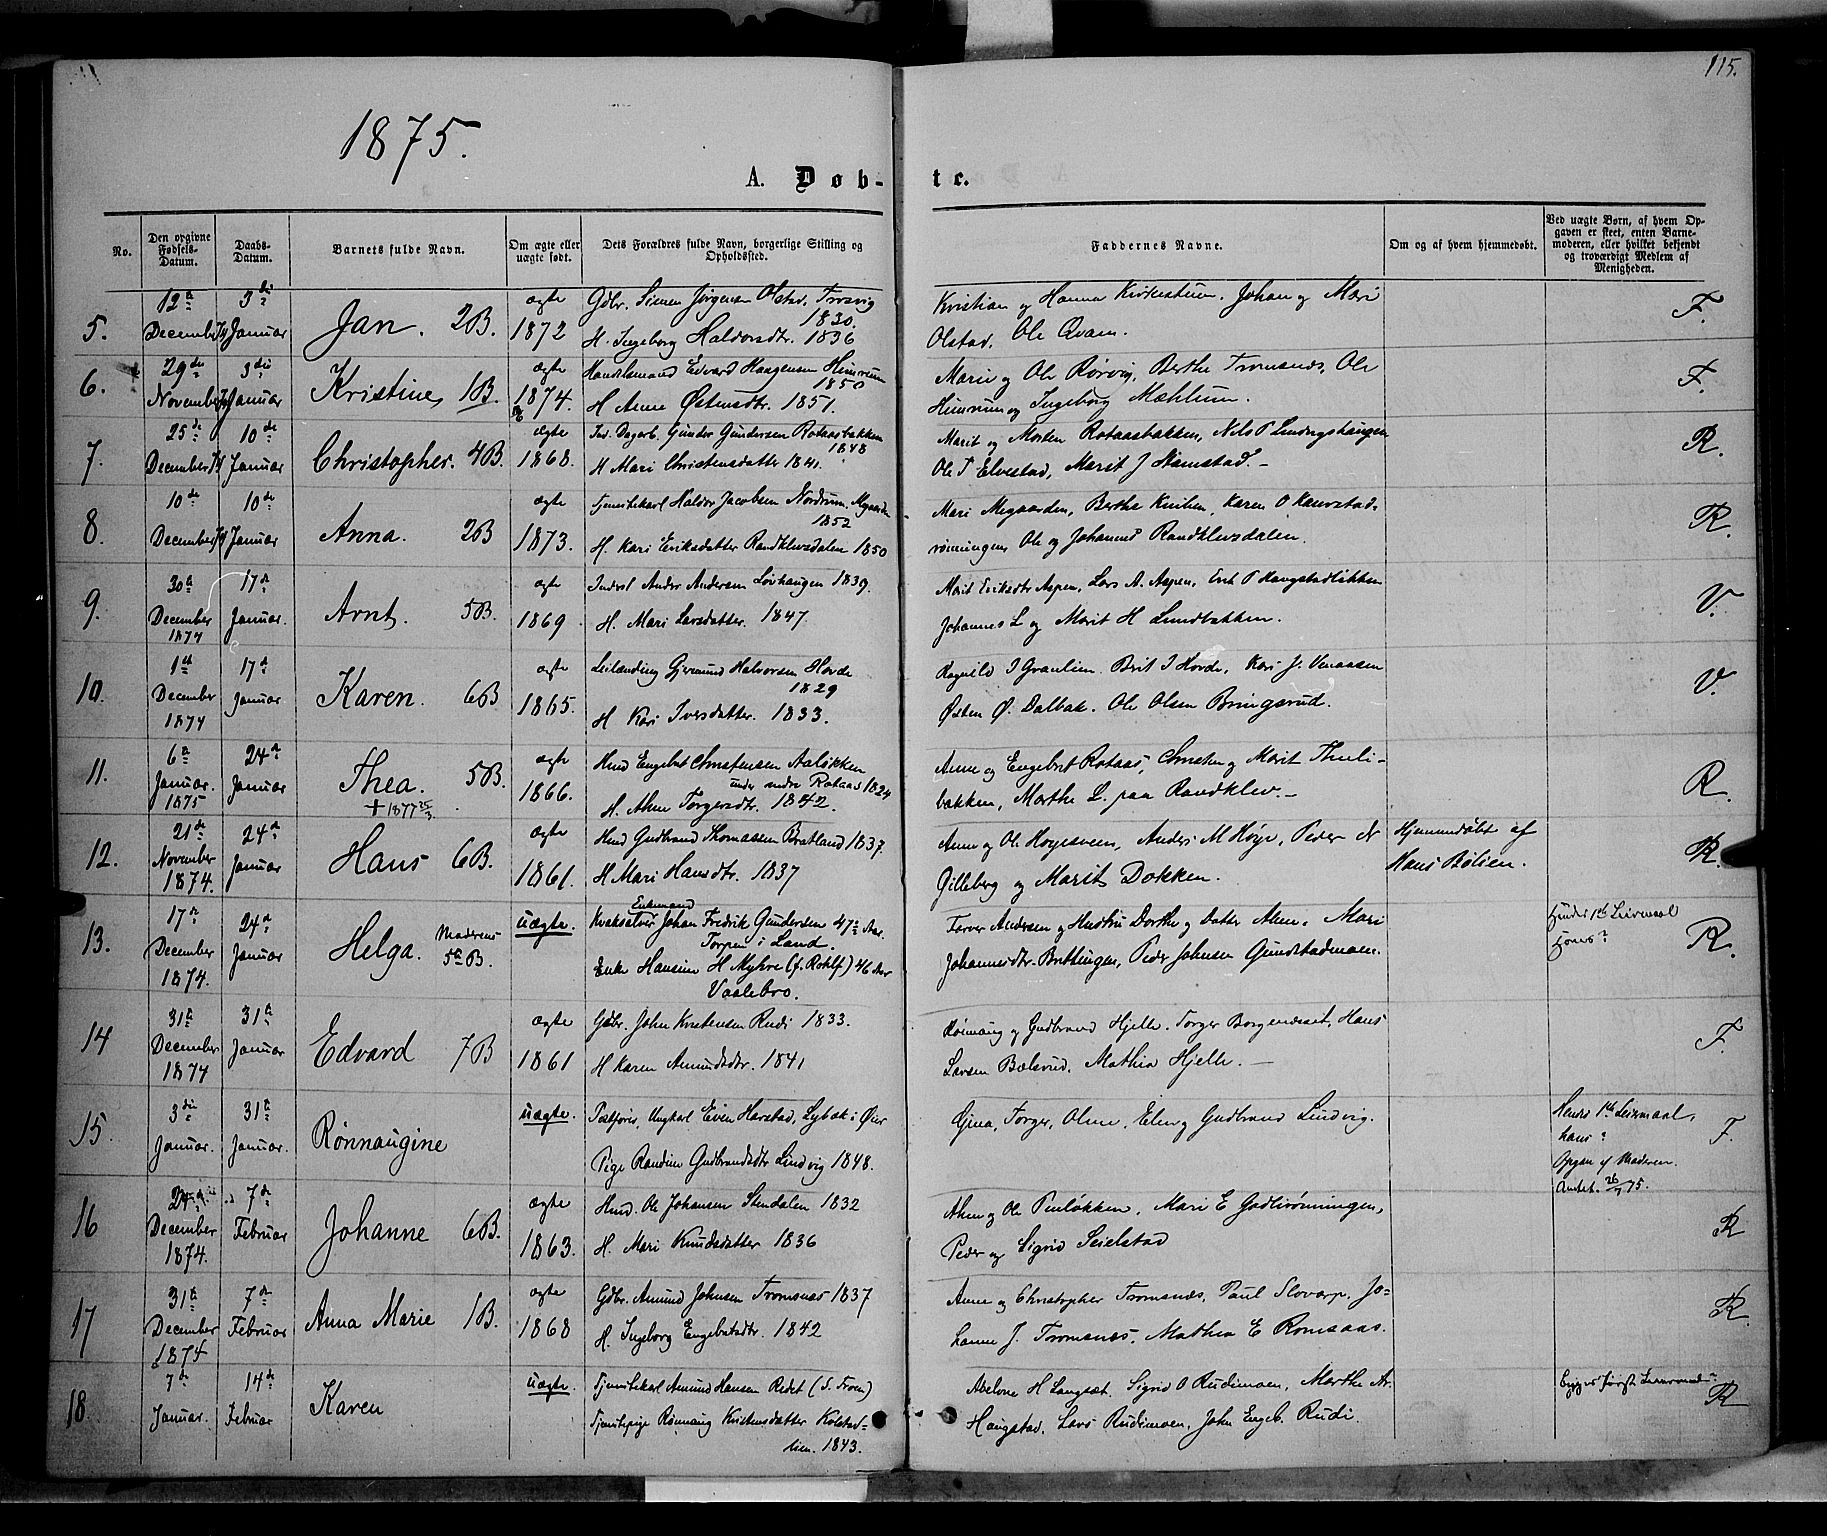 115.
1875.
A. Døb-
te.
No.
Den opgivne Fødsels-Datum.
Daabs-Datum.
Barnets fulde Navn.
Om ægte eller uægte født.
Dets Forældres fulde Navn, borgerlige Stilling og Opholdssted.
Faddernes Navne.
Om og af hvem hjemmedøbt.
Ved uægte Børn, af hvem Opgaven er skeet, enten Barnemoderen, eller hvilket bekjendt og troværdigt Medlem af Menigheden.
5. 12te December 74 3die Januar Jan. 2B. ægte 1872
Gdbr. Simen Jørgensen Olstad, Trosvig 1830.
H. Ingeborg Haldorsdtr. 1836
Kristian og Hanna Kirkestuen. Johan og Mari
Olstad. Ole Qvam.
F.
6. 29de November 3die Januar Kristine, 1B. ægte 1874.
Handelsmand Edvard Haagensen Himrum 1850
H Anne Østensdtr. 1851.
Marie og Ole Rørvig, Berthe Tromsnes, Ole
Himrum og Ingeborg Mæhlum.
F.
7. 25de December 74 10de Januar Christopher. 4B. ægte 1868.
Ind. Dagarb. Gunder Gundersen Rotaasbakken 1848
H Mari Christensdatter 1841.
Marit og Morten Rotaasbakken, Nils P Lindvigshaugen
Ole T Elvestad, Marit J Hamstad.
R.
8. 10de December 74 10de Januar Anna. 2B ægte 1873.
Tjenestekarl Haldor Jacobsen Nordrum, Megaarden 1852
H. Kari Eriksdatter Randklevsdalen 1850
Mari Megaarden, Berthe Kniken, Karen O Kanvstad-
rønningen, Ole og Johannes Randklevsdalen.
R.
9. 30te December 1874 17de Januar. Arnt. 5B. ægte 1869.
Inderst Anders Andersen Løvhaugen 1839.
H. Mari Larsdatter. 1847.
Marit Eriksdtr Aspen, Lars A. Aspen, Erik P Haugstadløkken
Johannes L og Marit H Lundbakken.
V.
10. 1ste December 1874 17de Januar Karen. 6B ægte 1865.
Leilænding Gjermund Halvorsen Hovde 1829
H Kari Iversdatter. 1833.
Ragnild I Graulien. Brit I Hovde, Kari J. Venaasen
Østen Ø. Dalbak. Ole Olsen Bringsrud.
V.
11. 6te Januar. 1875 24de Januar Thea. 5B. ægte 1866.
+ 1877 25/3.
Hmd Engebret Christensen Aaløkken
under nedre Rotaas 1824
H. Anne Torgersdtr. 1842.
Anne og Engebret Rotaas, Christen og Marit Thuli-
bakken, Marthe L. paa Randklev.
R.
12. 21de November 1874. 24de Januar Hans 6B. ægte 1861.
Hmd Gudbrand Thomassen Bratland 1837.
H Mari Hansdtr. 1837
Anne og Ole Høgesveen, Anders M Høge, Peder N
Gilleberg og Marit Dokken.
Hjemmedøbt af
Hans Bølien.
R.
13. 17de December 1874. 24de Januar Helga. Moderens 5te B. uægte.
Enkemand
Kvaksalver Johan Fredrik Gundersen 47de Aar.
Torpen i Land.
Enke Hansine H Myhre (f. Rohlf) 46 Aar
Vaalebro.
Torver Andersen og Hustru Dorthe og Datter Anne. Mari
Johannesdtr. Brettingen, Peder Johnsen Gundstadmoen.
Hendes 1ste Leiermaal
R.
14 31te December 1874 31te Januar Edvard 7B ægte 1861
Gdbr. John Kristensen Rudi 1833.
H Karen Amundsdtr. 1841
Rønnaug og Gudbrand Hjelle. Torger Borgenæset, Hans
Larsen Bælsrud. Mathea Hjelle.
F.
15 3die Januar. 31te Januar. Rønnaugine uægte.
Postfører, Ungkarl Even Harstad, Lybæk i Øier
Pige Randine Gudbrandsdtr Lindvig 1848.
Gina, Torger, Oline, Elen og Gudbrand Lindvig.
Hendes 1ste Leiermaal,
hans?
Opgav. af Moderen.
F.
16 December 1874. 7de Februar Johanne 6B. ægte 1863.
Hmd. Ole Johansen Stendalen 1832
H. Mari Knudsdatter 1836
Anne og Ole Penløkken, Mari E Godlirønningen,
Peder og Sigrid Seielstad
R
17 31te December 1874 7de Februar Anna Marie 1B. ægte 1868
Gdbr. Amund Johnsen Tromsnes 1837
H. Ingeborg Engebretsdtr. 1842
Anne og Christopher Tromsnes. Paul Slovarp. Jo-
hanne J. Tromsnes. Mathea E Romsaas.
R
18 7de Januar. 14de Februar Karen uægte.
Tjenestekarl Amund Hansen Redet (S. From)
Tjenestepige Rønnaug Kristensdatter Kolstad-
lien. 1843.
Abelone H Langset. Sigrid O Rudimoen, Marthe Ar.
Haugstad. Lars Rudimoen. John Engeb. Rudi
R